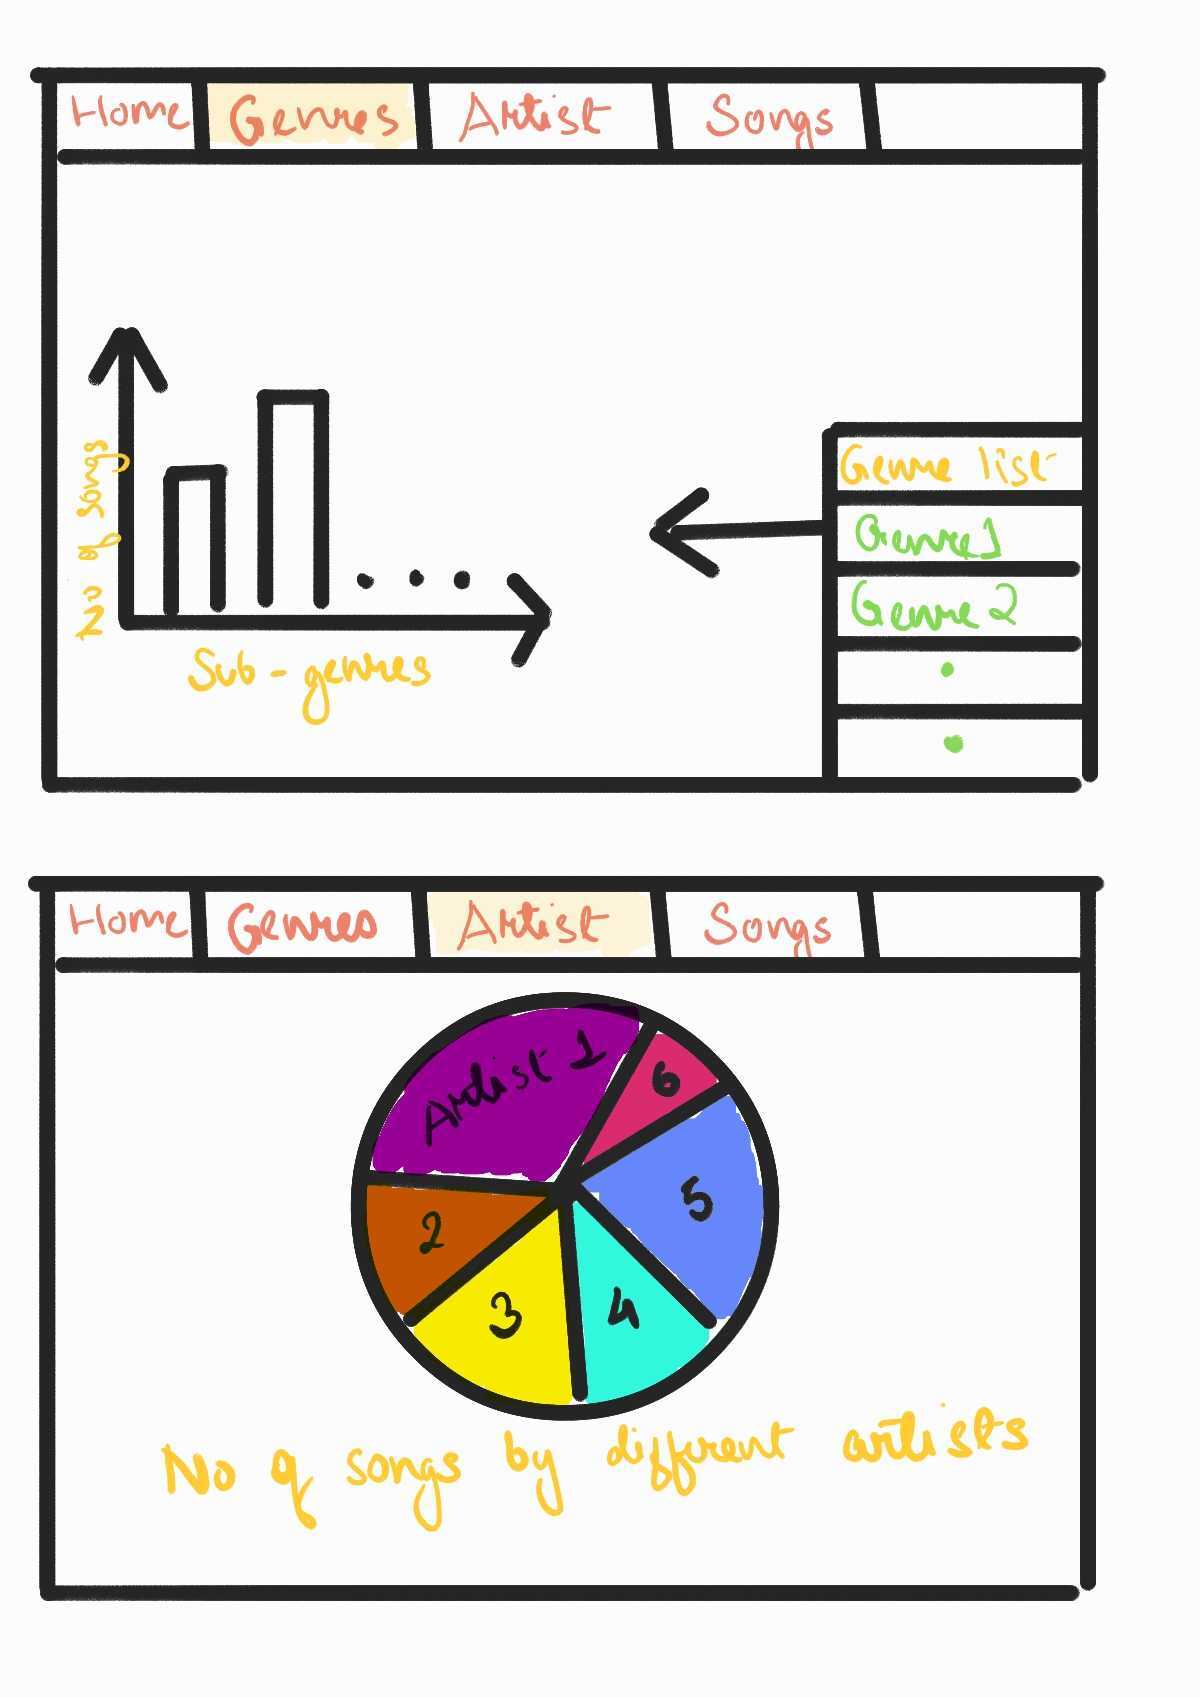 Home Genres Artist Songs
No of songs
Sub-genres
Genre list
Genre 1
Genre 2
Home Genres Artist Songs
Artist 1
6
5
2
3
4
No of songs by different artists